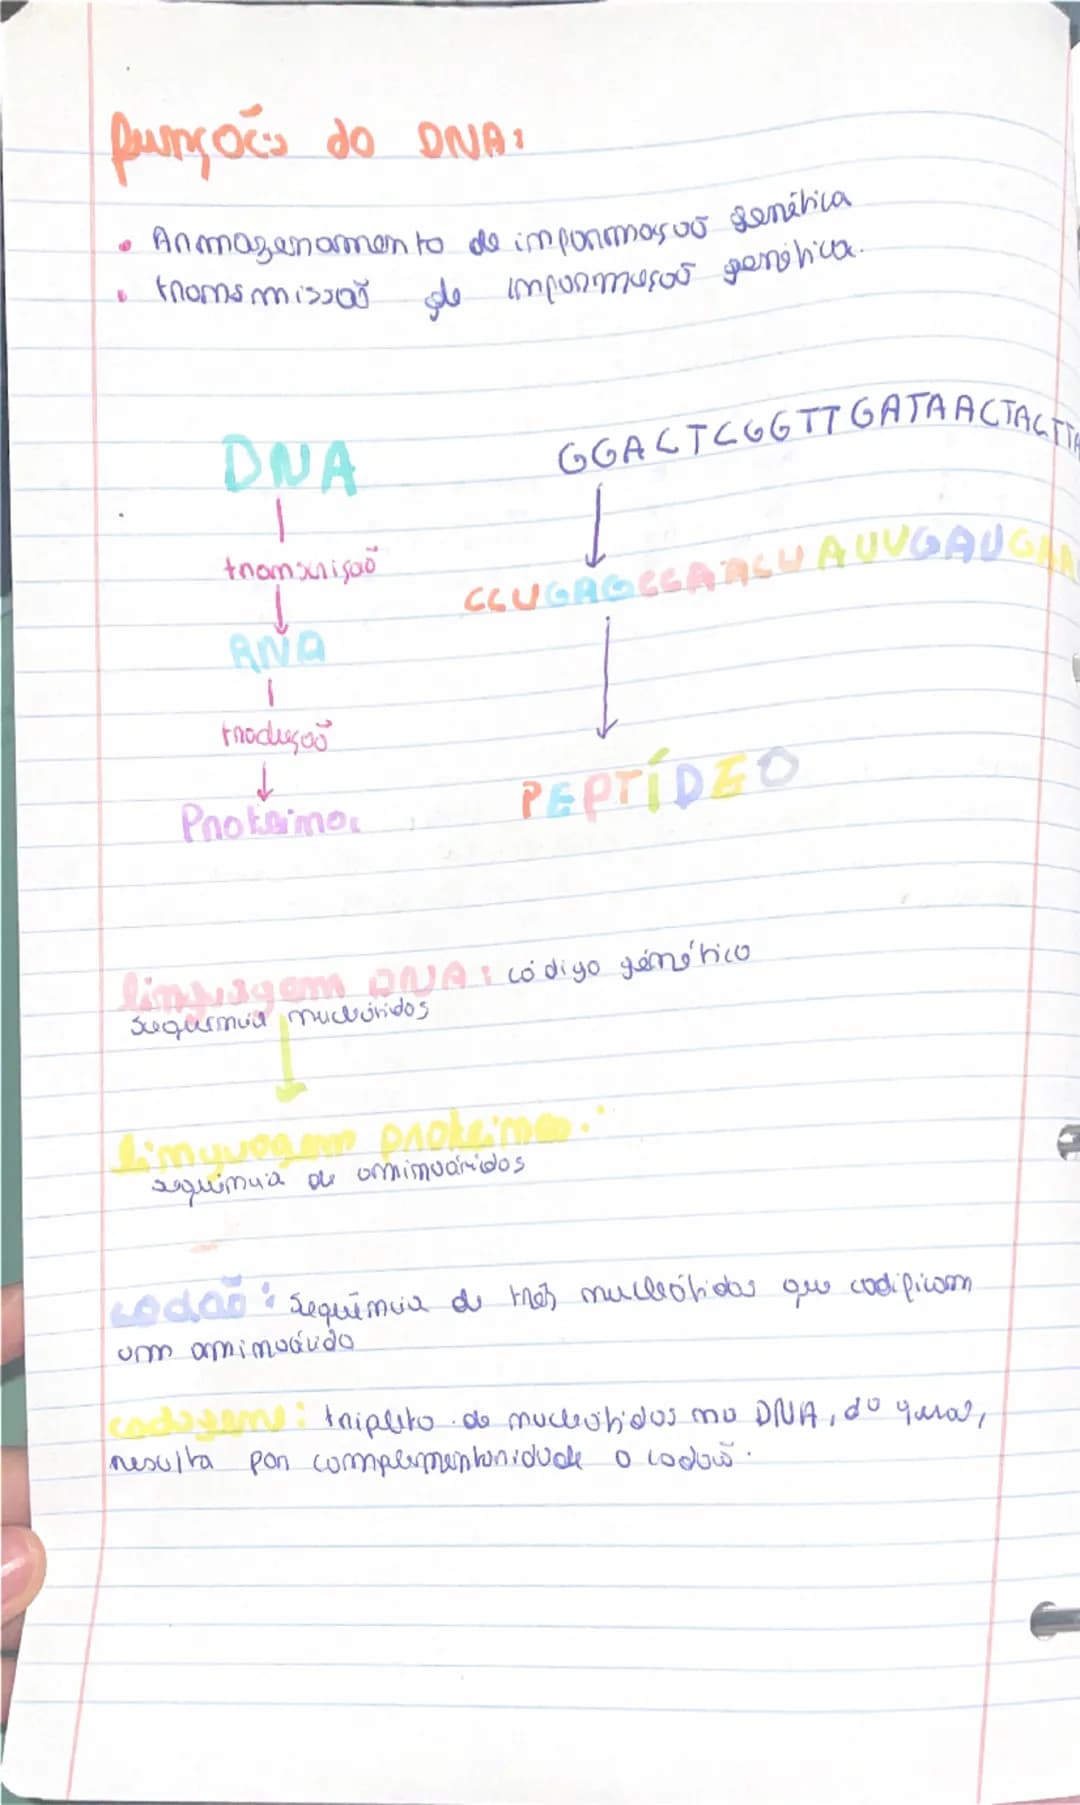 funções do DNA:
• Armazenamento de informação genética
• transmissão de informação genética.
DNA
GGACTCGGTTGATAACTACTTA
transcrição
CCUGAGCCAACUAUUGAUGAA
RNA
tradução
PEPTÍDEO
Proteina
linguagem DNA: código génético
sequência nucleótidos
linguagem proteinas:
sequência de aminoácidos
codão: Sequência de três nucleótidos que codificam
um aminoácido
codogene: tripleto de nucleótidos no DNA, do qual,
resulta por complementaridade o codão.